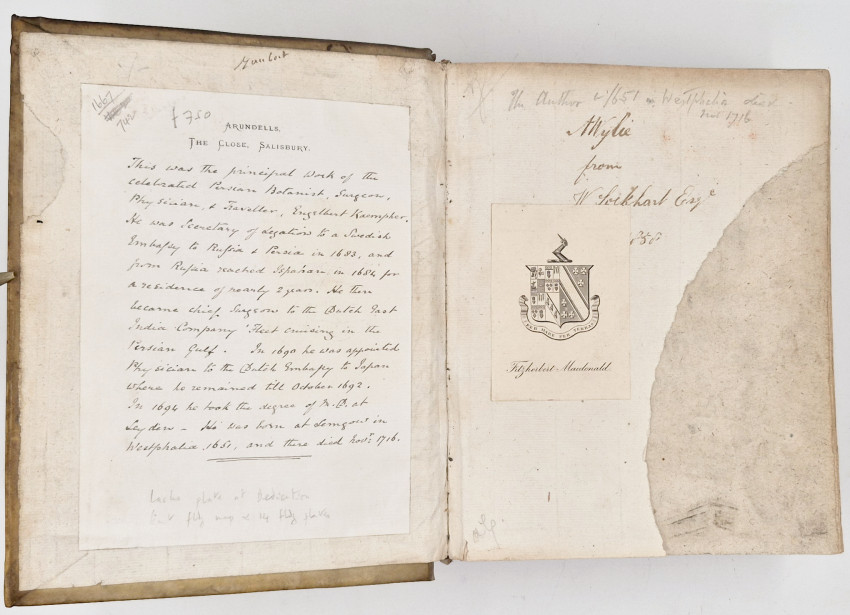 1667
742
£750
ARUNDELLS,
THE CLOSE, SALISBURY.
This was the principal work of the
celebrated Persian Botanist, Surgeon,
Physician, & Traveller, Engelbert Kaempher.
He was Secretary of Legation to a Swedish
Embassy to Russia & Persia in 1683, and
from Russia reached Ispahan in 1684 for
a residence of nearly 2 years. He then
became chief Surgeon to the Dutch East
India Company Fleet cruising in the
Persian Gulf. In 1690 he was appointed
Physician to the Dutch Embassy to Japan
where he remained till October 1692.
In 1694 he took the degree of M.D. at
Leyden - He was born at Lemgow in
Westphalia, 1651, and there died Novr. 1716.
Lacks plate at Dedication
fldg map & 14 fldg plates
The Author 1651 in Westphalia died
1716
AWylie
from
W Lockhart Esqe
1858
PER MARE PER TERRAS
Fitzherbert-Macdonald